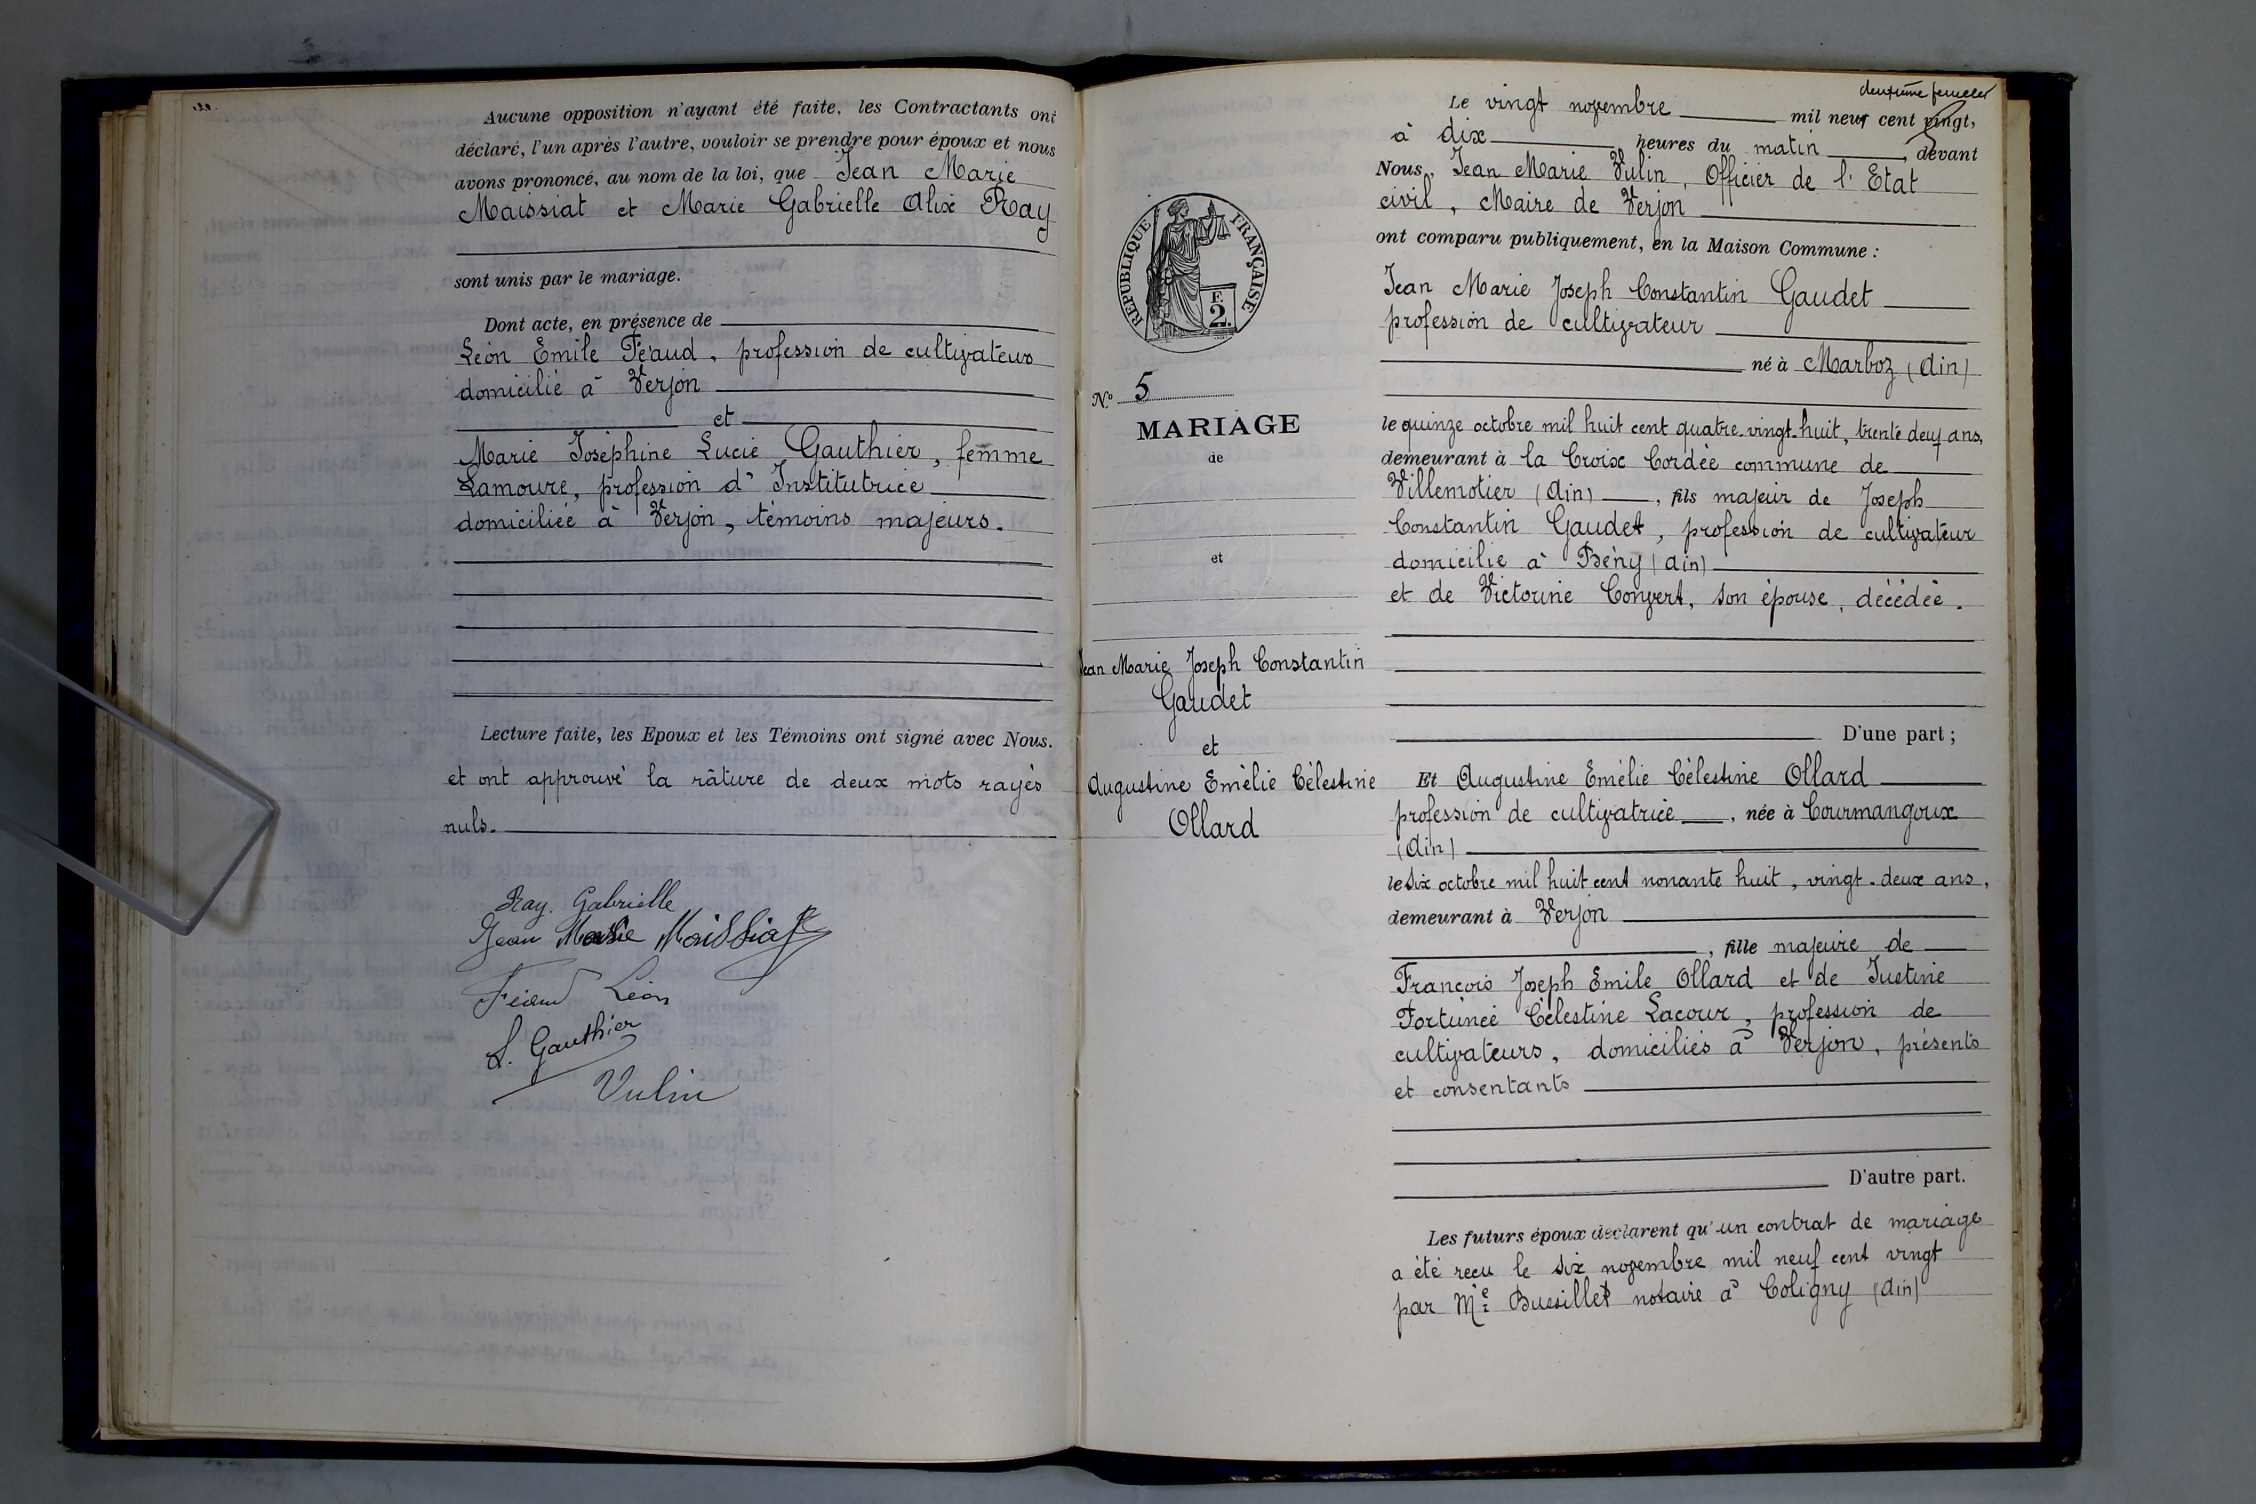 Aucune opposition n'ayant été faite, les Contractants ont
déclaré, l'un après l'autre, vouloir se prendre pour époux et nous
avons prononcé, au nom de la loi, que Jean Marie
Maissiat et Marie Gabrielle Alix Ray
sont unis par le mariage.
Dont acte, en présence de
Léon Emile Féaud, profession de cultivateur
domicilié à Verjon
et
Marie Joséphine Lucie Gauthier, femme
Lamoure, profession d'Institutrice
domiciliée à Verjon, témoins majeurs.
Lecture faite, les Epoux et les Témoins ont signé avec Nous.
et ont approuvé la râture de deux mots rayés
nuls.
Ray. Gabrielle
Jean Marie Maissiat
Féaud Léon
L. Gauthier
Vulin
RÉPUBLIQUE FRANÇAISE
F.
2.
N.° 5
MARIAGE
de
et
Jean Marie Joseph Constantin
Gaudet
et
Augustine Emélie Célestine
Ollard
deuxième feuillet
Le vingt novembre mil neuf cent vingt,
à dix heures du matin, devant
Nous, Jean Marie Vulin, Officier de l'Etat
civil, Maire de Verjon
ont comparu publiquement, en la Maison Commune :
Jean Marie Joseph Constantin Gaudet
profession de cultivateur
né à Marboz (Ain)
le quinze octobre mil huit cent quatre-vingt-huit, trente deux ans,
demeurant à la Croix Cordée commune de
Villemotier (Ain), fils majeur de Joseph
Constantin Gaudet, profession de cultivateur
domicilié à Bény (Ain)
et de Victorine Convert, son épouse, décédée.
D'une part ;
Et Augustine Emélie Célestine Ollard
profession de cultivatrice, née à Courmangoux
(Ain)
le six octobre mil huit cent nonante huit, vingt-deux ans,
demeurant à Verjon
, fille majeure de
François Joseph Emile Ollard et de Justine
Fortunée Célestine Lacour, profession de
cultivateurs, domiciliés à Verjon, présents
et consentants
D'autre part.
Les futurs époux déclarent qu'un contrat de mariage
a été reçu le six novembre mil neuf cent vingt
par Me notaire à Coligny (Ain)